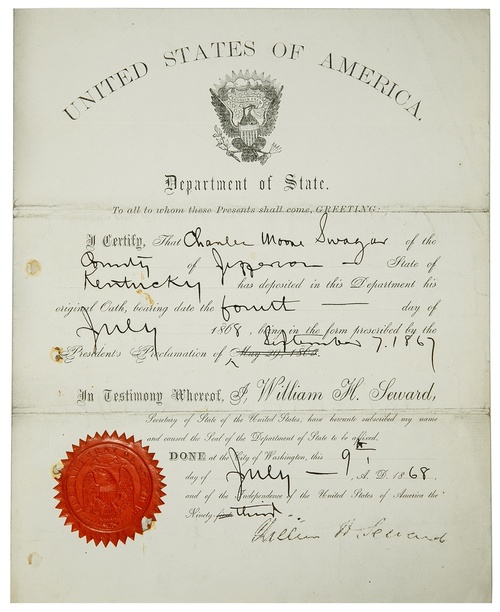 UNITED STATES OF AMERICA.
Department of State.
To all to whom these Presents shall come, GREETING:
I Certify, That Charles Moore Swagar of the
County of Jefferson State of
Kentucky has deposited in this Department his
original Oath, bearing date the fourth day of
July 1868, being in the form prescribed by the
President's Proclamation of May 29, 1865. September 7. 1867
In Testimony Whereof, I, William H. Seward,
Secretary of State of the United States, have hereunto subscribed my name
and caused the Seal of the Department of State to be affixed.
DONE at the City of Washington, this 9th
day of July A. D. 1868.
and of the Independence of the United States of America the
Ninety third.
William H. Seward